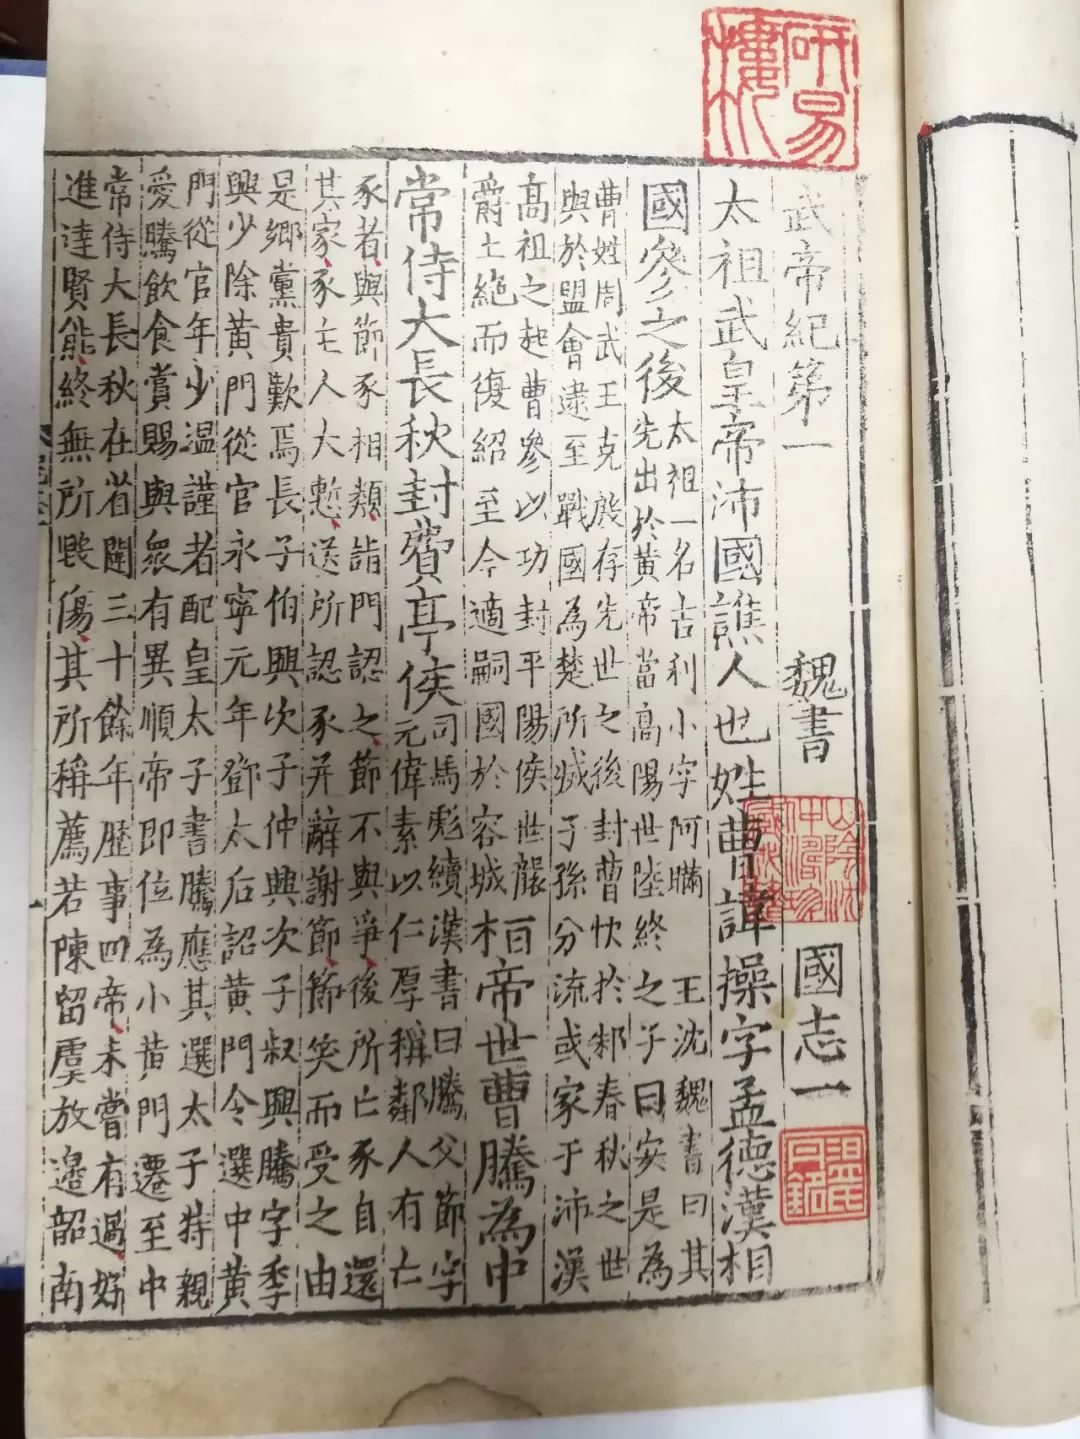 研易樓
武帝紀第一 魏書 國志一
太祖武皇帝沛國譙人也姓曹諱操字孟德漢相
國參之後太祖一名吉利小字阿瞞 王沈魏書曰其
先出於黃帝當高陽世陸終之子曰安是為
曹姓周武王克殷存先世之後封曹俠於邾春秋之世
與於盟會逮至戰國為楚所滅子孫分流或家于沛漢
高祖之起曹參以功封平陽侯世襲
爵土絕而復紹至今適嗣國於容城桓帝世曹騰為中
常侍大長秋封費亭侯司馬彪續漢書曰騰父節字
元偉素以仁厚稱鄰人有亡
豕者與節豕相類詣門認之節不與爭後所亡豕自還
其家豕主人大慙送所認豕并辭謝節節笑而受之由
是鄉黨貴歎焉長子伯興次子仲興次子叔興騰字季
興少除黃門從官永寧元年鄧太后詔黃門令選中黃
門從官年少溫謹者配皇太子書騰應其選太子特親
愛騰飲食賞賜與眾有異順帝即位為小黃門遷至中
常侍大長秋在省闥三十餘年歷事四帝未嘗有過好
進達賢能終無所毀傷其所稱薦若陳留虞放邊韶南